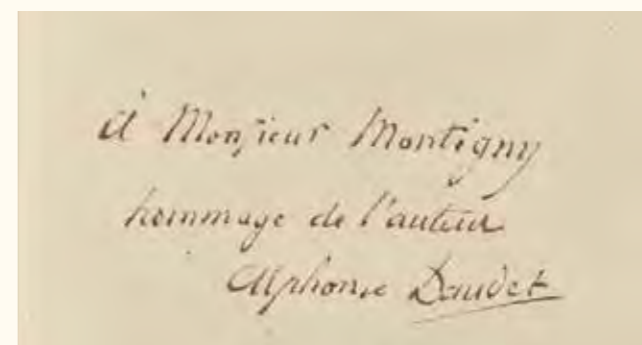 à Monsieur Montigny
hommage de l'auteur
Alphonse Daudet